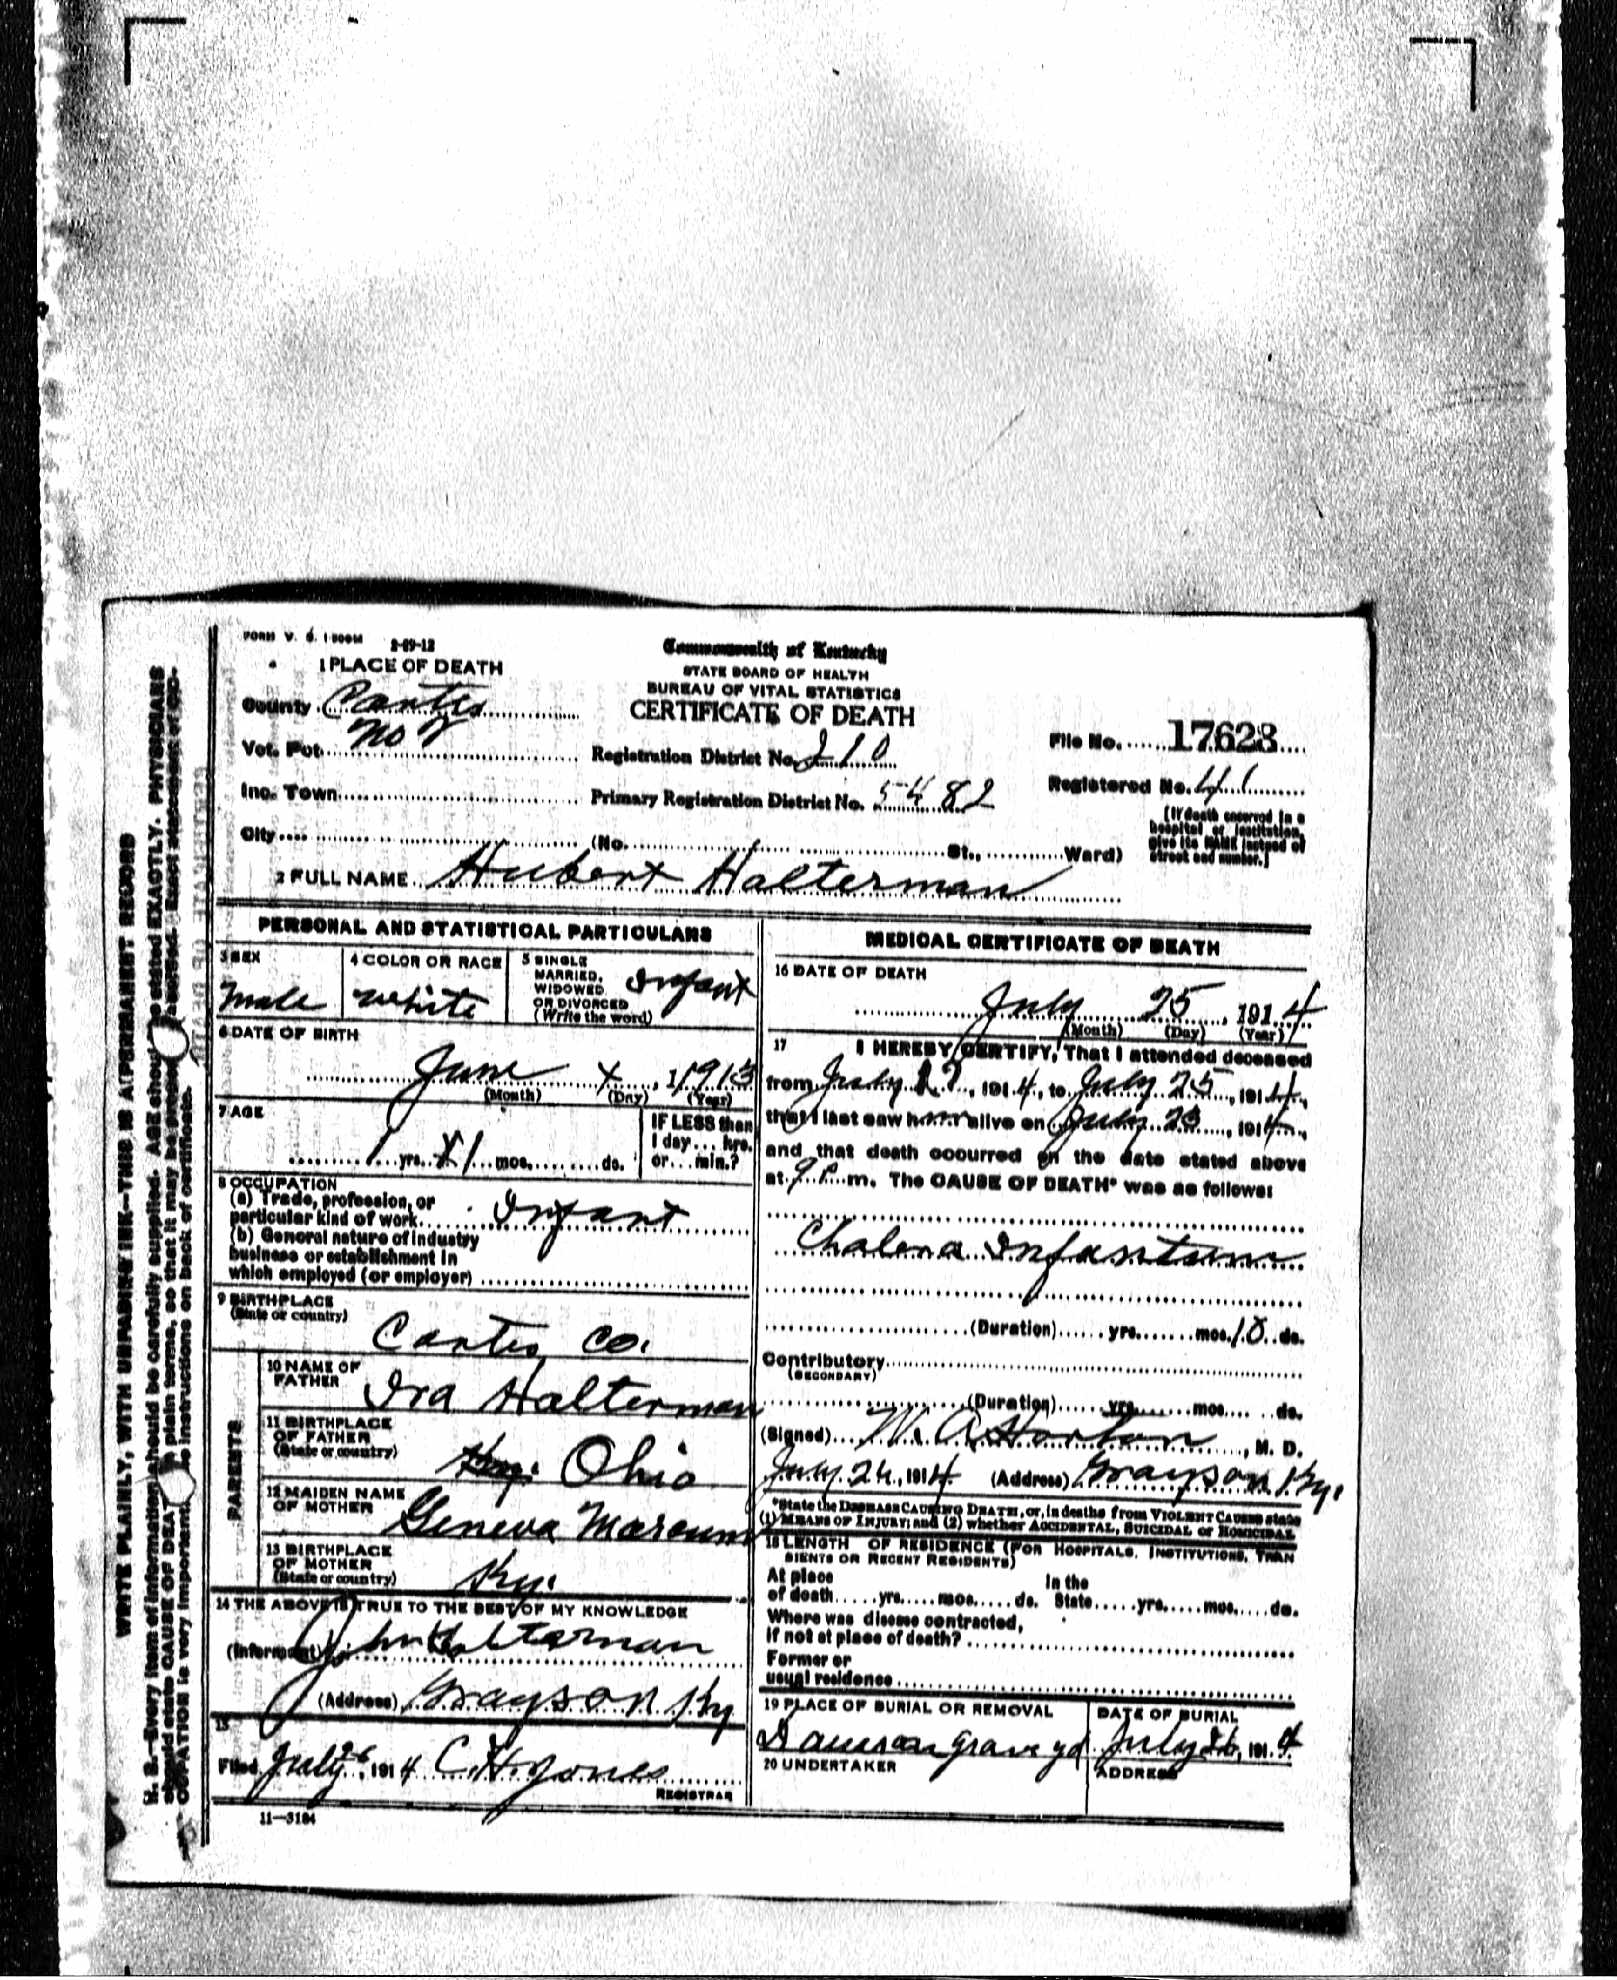 FORM V. S. 1-500M 2-09-12
Commonwealth of Kentucky
1 PLACE OF DEATH
STATE BOARD OF HEALTH
BUREAU OF VITAL STATISTICS
CERTIFICATE OF DEATH
County Carter
Vot. Pct. No 2
File No. 17623
Registration District No. 210
Registered No. 41
Inc. Town
Primary Registration District No. 5482
[If death occurred in a
hospital or institution,
give its NAME instead of
street and number.]
City (No. St., Ward)
2 FULL NAME Hubert Halterman
PERSONAL AND STATISTICAL PARTICULARS
3 SEX
Male
4 COLOR OR RACE
white
5 SINGLE
MARRIED,
WIDOWED
OR DIVORCED
(Write the word)
Infant
6 DATE OF BIRTH
June 4, 1913
(Month) (Day) (Year)
7 AGE
1 yrs. 1 mos. ds.
IF LESS than
1 day... hrs.
or... min.?
8 OCCUPATION
(a) Trade, profession, or
particular kind of work Infant
(b) General nature of industry
business or establishment in
which employed (or employer)
9 BIRTHPLACE
(State or country)
Carter Co.
PARENTS
10 NAME OF
FATHER
Ira Halterman
11 BIRTHPLACE
OF FATHER
(State or country)
Ky. Ohio
12 MAIDEN NAME
OF MOTHER
Geneva Marcum
13 BIRTHPLACE
OF MOTHER
(State or country)
Ky.
14 THE ABOVE IS TRUE TO THE BEST OF MY KNOWLEDGE
(Informant) John Halterman
(Address) Grayson Ky
15
Filed July 26, 1914 C. H. Jones
REGISTRAR
11—3184
MEDICAL CERTIFICATE OF DEATH
16 DATE OF DEATH
July 25, 1914
(Month) (Day) (Year)
17 I HEREBY CERTIFY, That I attended deceased
from July, 1914, to July 25, 1914,
that I last saw h alive on July 25, 1914,
and that death occurred on the date stated above
at 9 P. m. The CAUSE OF DEATH* was as follows:
Cholera Infantum
(Duration) yrs. mos. 10 ds.
Contributory
(SECONDARY)
(Duration) yrs. mos. ds.
(Signed) W. A. Horton, M. D.
July 26, 1914 (Address) Grayson Ky.
*State the DISEASE CAUSING DEATH, or, in deaths from VIOLENT CAUSES state
(1) MEANS OF INJURY; and (2) whether ACCIDENTAL, SUICIDAL or HOMICIDAL
18 LENGTH OF RESIDENCE (FOR HOSPITALS, INSTITUTIONS, TRAN
SIENTS OR RECENT RESIDENTS)
At place
of death yrs. mos. ds.
In the
State yrs. mos. ds.
Where was disease contracted,
if not at place of death?
Former or
usual residence
19 PLACE OF BURIAL OR REMOVAL
grave yd
DATE OF BURIAL
July 26, 1914
20 UNDERTAKER
ADDRESS
WRITE PLAINLY, WITH UNFADING INK—THIS IS A PERMANENT RECORD
N. B.—Every item of information should be carefully supplied. AGE should be stated EXACTLY. PHYSICIANS
should state CAUSE OF DEATH in plain terms, so that it may be properly classified. Exact statement of OC-
CUPATION is very important. See instructions on back of certificate.